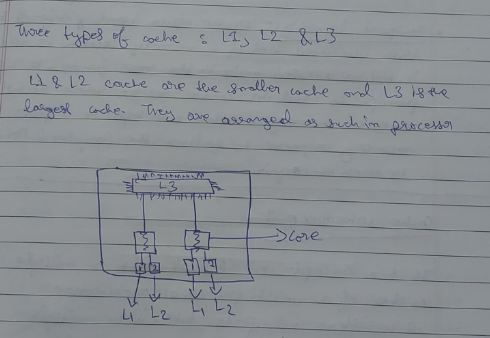 Three types of cache : L1, L2 & L3
L1 & L2 cache are the smaller cache and L3 is the
largest cache. They are arranged as such in processor
L3
core
1 2 1 2
L1 L2 L1 L2